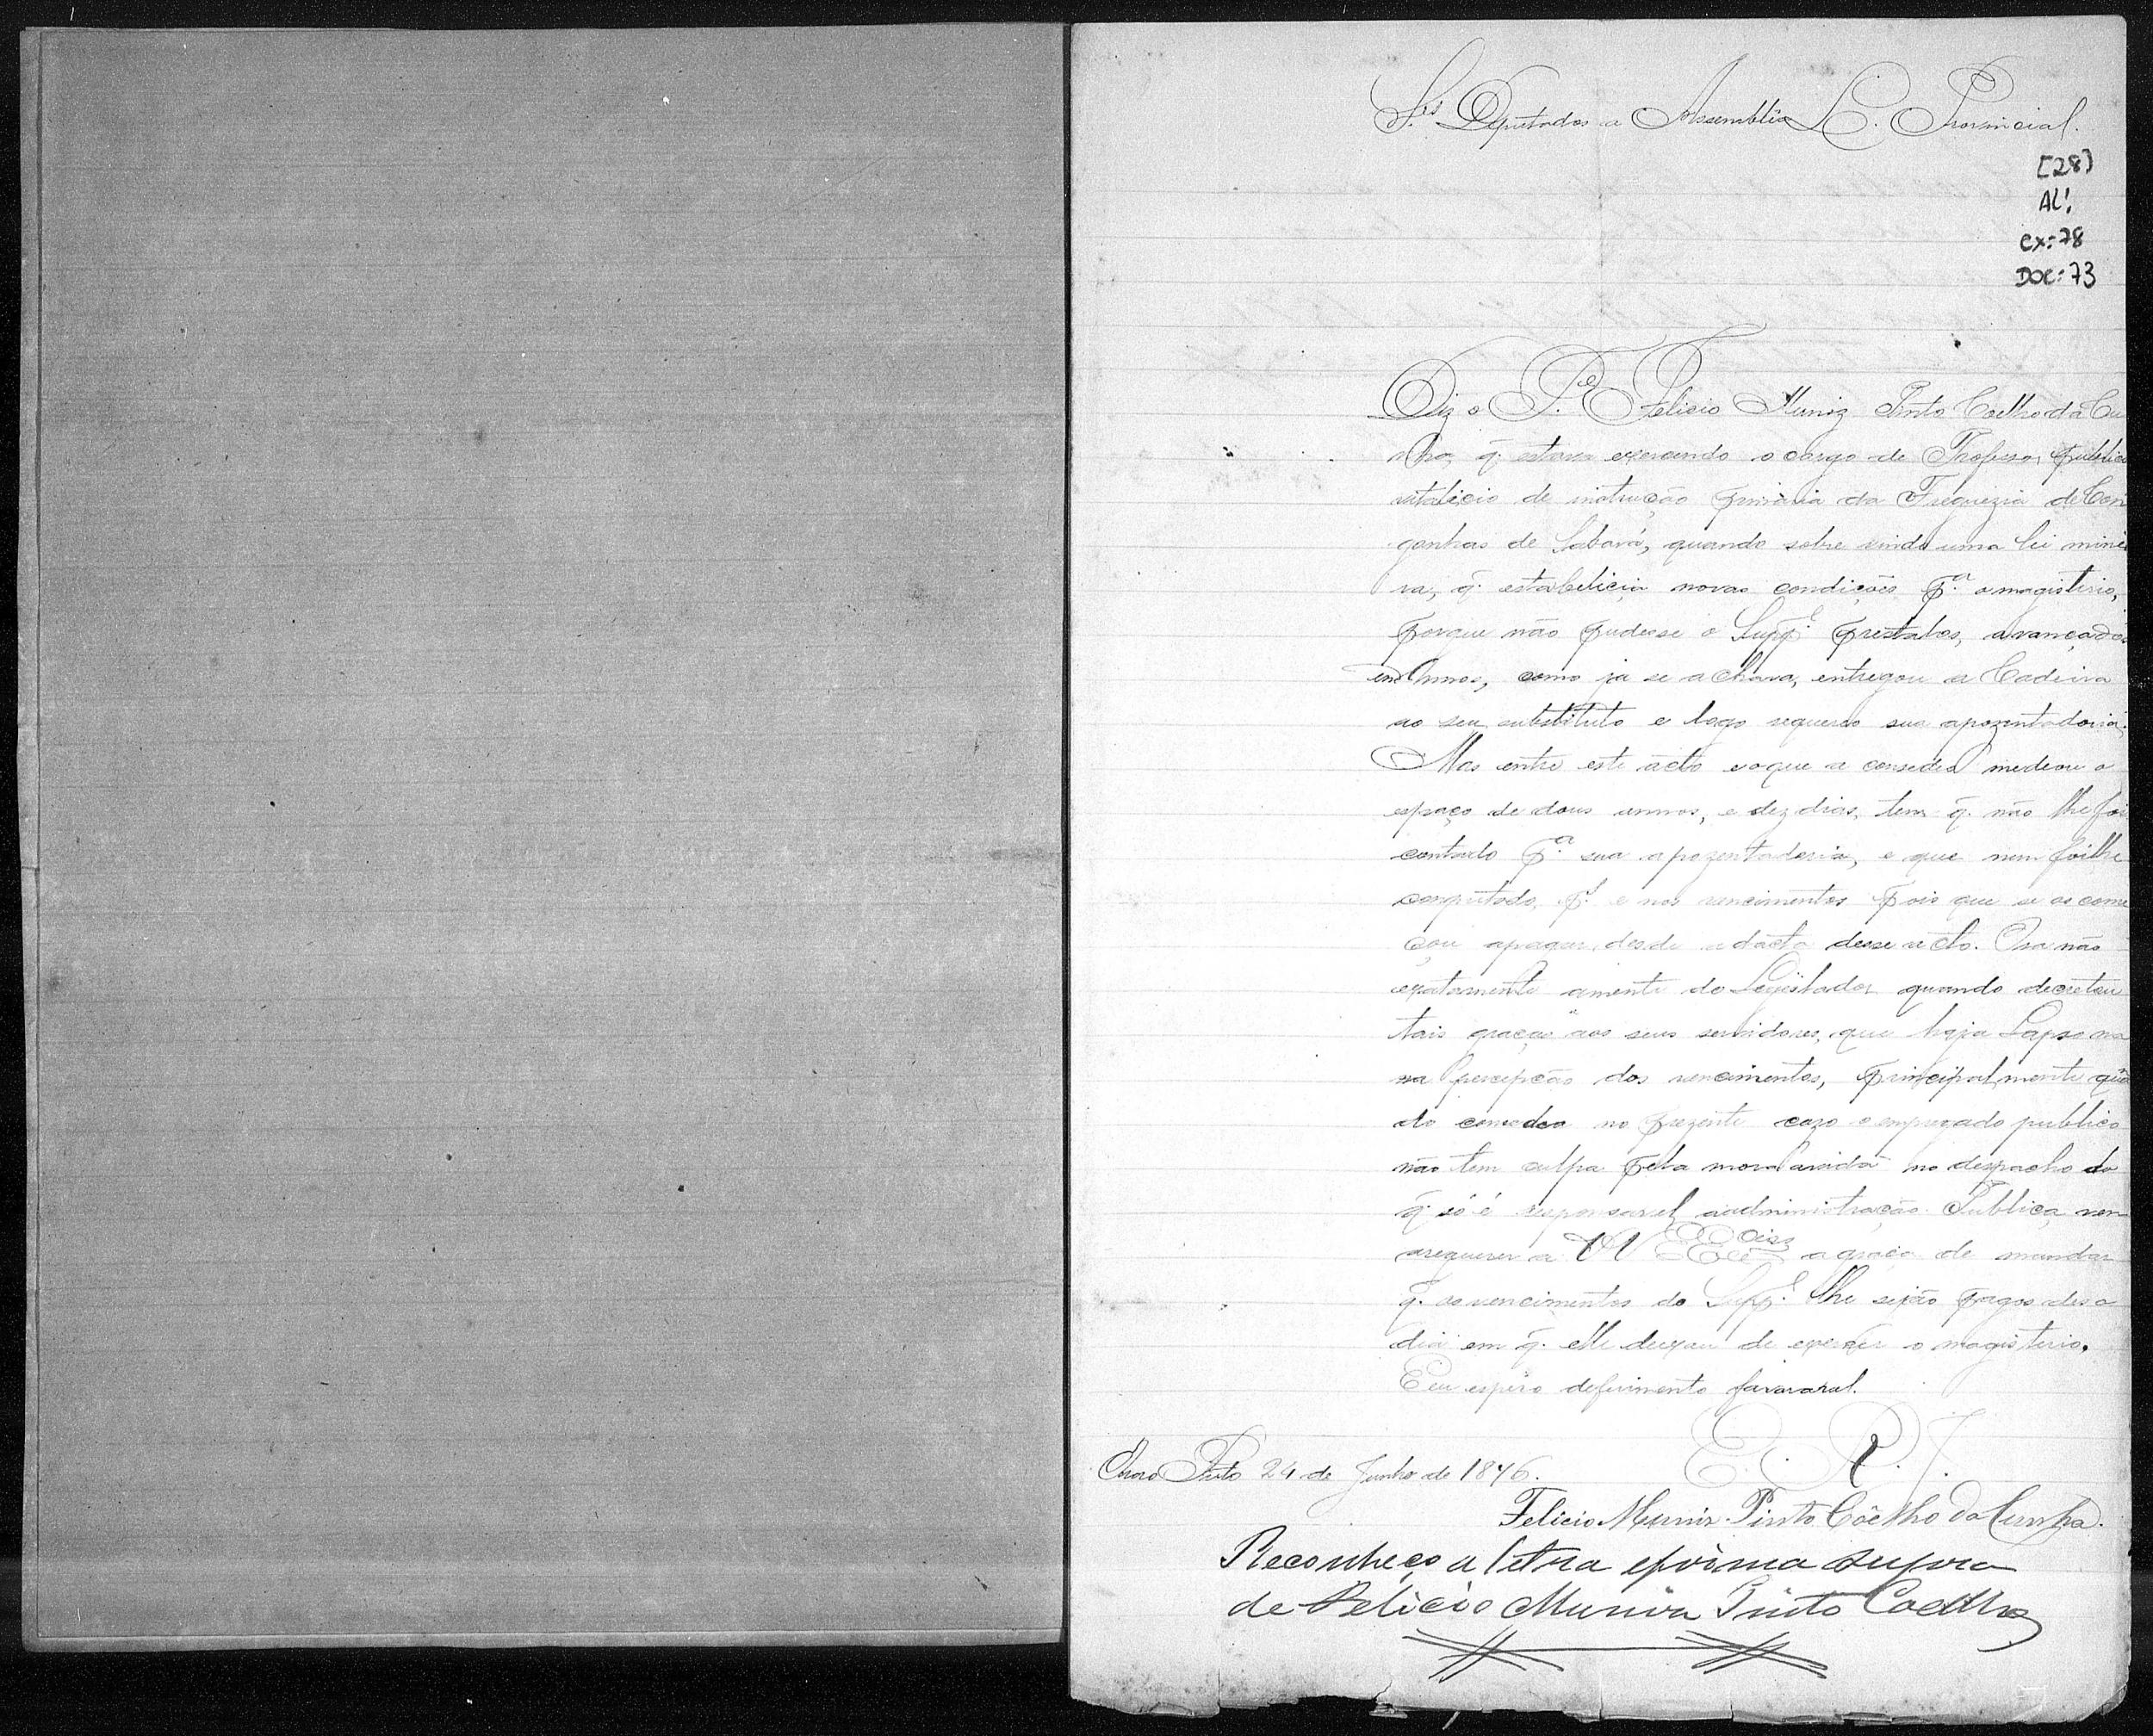 S.res Deputados a Assembléa L. Provincial.
[28]
AL!
CX: 78
DOC: 73
Diz o P.e Felicio Muniz Pinto Coelho da Cu
nha, q. estava exercendo o cargo de Professor publico
vitalicio de instrucção primaria da Freguezia de Con
gonhas de Sabará, quando sobre vindo uma lei minei
ra, q. estabelicia novas condições p.a o magisterio,
porque não pudesse o Supp.e prestalas, avançados
em annos, como ja se achava, entregou a Cadeira
ao seu substituto e logo requereo sua apozentadoria.
Mas entre este acto e o que a consedeo medeou o
espaço de dous annos, e dez dias, tem q. não lhe foi
contado p.a sua apozentadoria, e que nem foi lhe
computado, p.a e nos vencimentos pois que se os come
çou a pagar, desde a dacta desse acto. Ora não
exatamente a mente do Legislador quando decretou
tais graças aos seus servidores, que haja Lapso
na percepção dos vencimentos, principalmente quã
do como no prezente cazo o empregado publico
não tem culpa pela mora havida no despacho do
q. só é responsavel a administração Publica vem
a requerer a VV EExc.cias a graça de mandar
q. os vencimentos do Supp.e lhe sejão pagos des o
dia em q. elle deixou de exercer o magisterio.
E eu espero deferimento favoravel.
E. R. J.
Ouro Preto 24 de Junho de 1876.
Felicio Muniz Pinto Coêlho da Cunha.
Reconheço a letra e firma supra
de Felicio Muniz Pinto Coelho